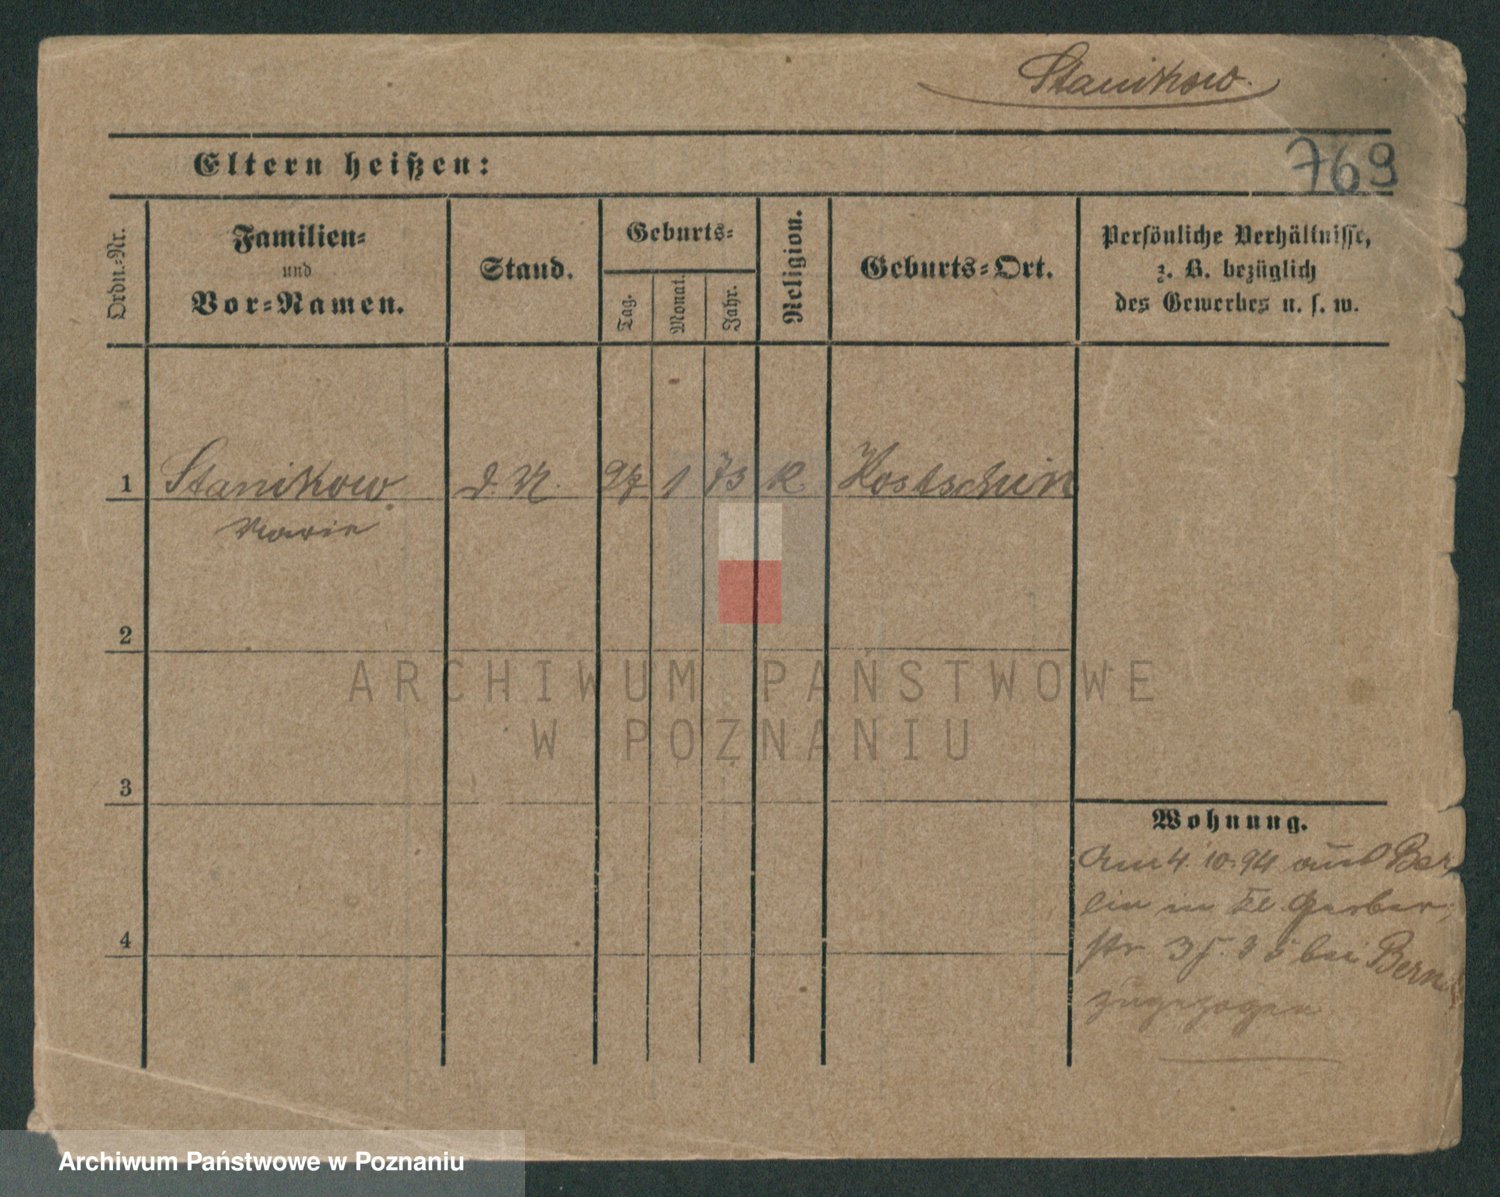 Stanikow.
769
Eltern heißen:
Ordn.-Nr.
Familien-
und
Vor-Namen.
Stand.
Geburts-
Tag.
Monat.
Jahr.
Religion.
Geburts-Ort.
Persönliche Verhältnisse,
z. B. bezüglich
des Gewerbes u. s. w.
1 Stanikow d. N. 27 1 73 k. Kostschin
Marie
2
3
4
Wohnung.
Am 4. 10. 94 aus Ber-
lin in Kl. Gerber-
str 3 bei
zugezogen
ARCHIWUM PAŃSTWOWE
W POZNANIU
Archiwum Państwowe w Poznaniu